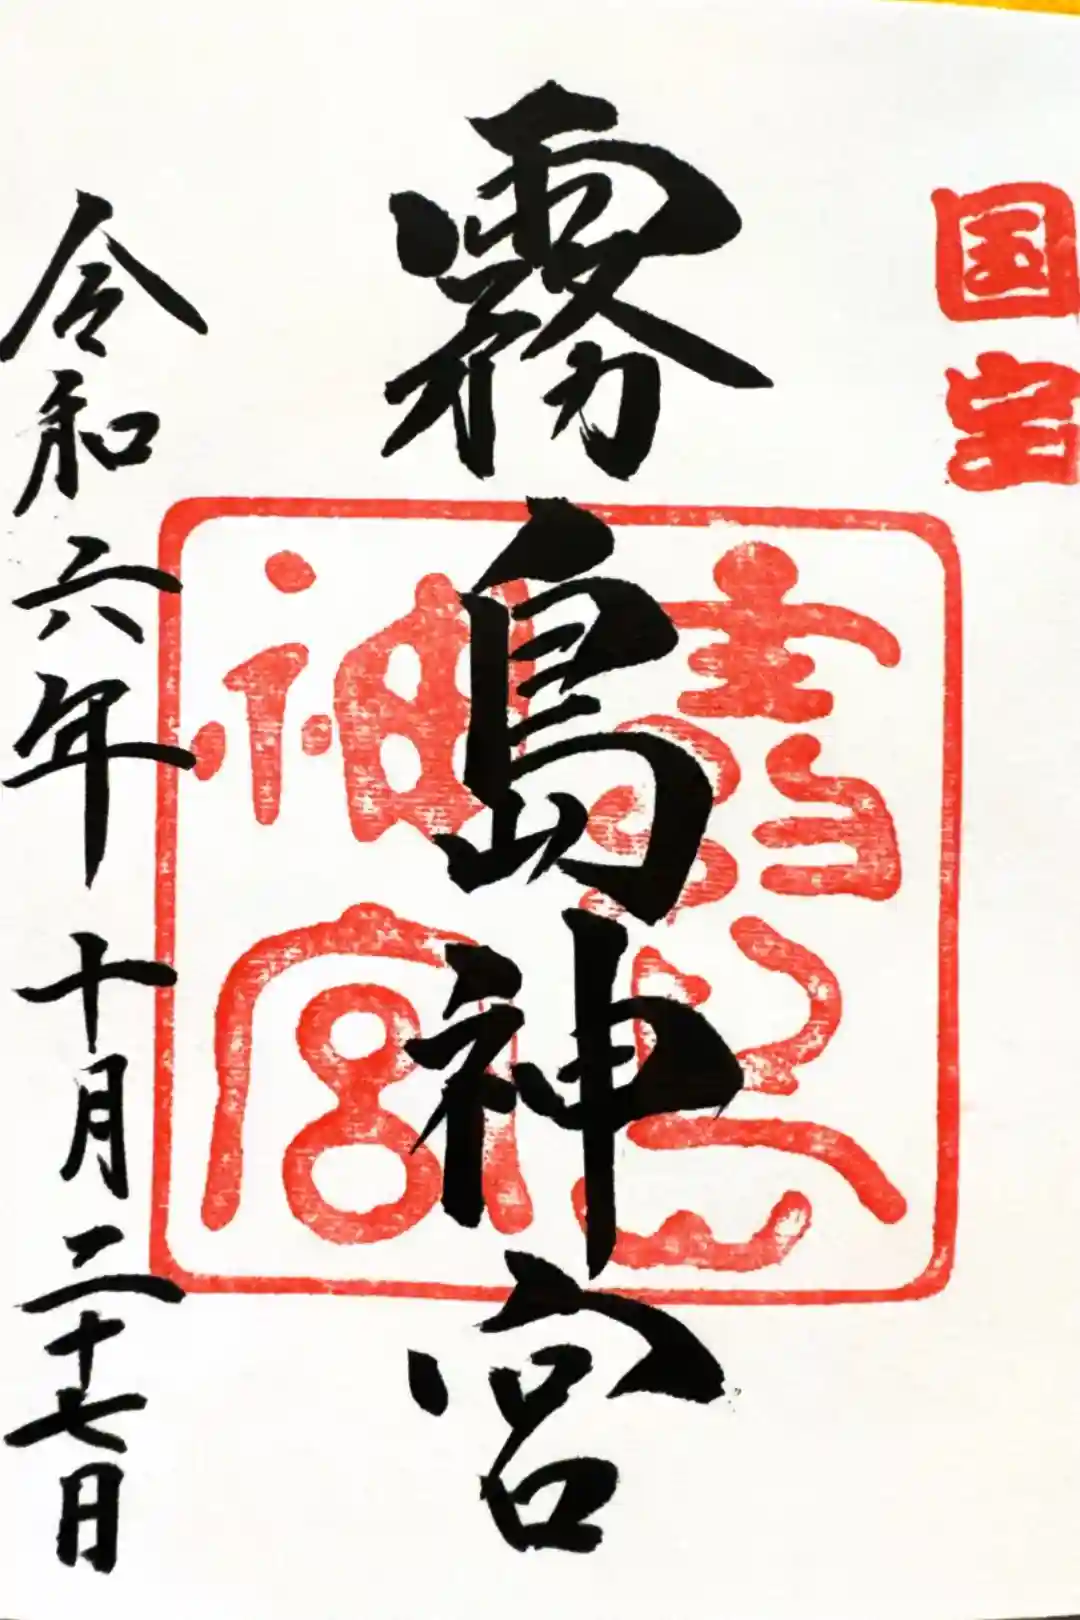 国宝
霧島神宮
霧島神宮
令和六年十月二十七日